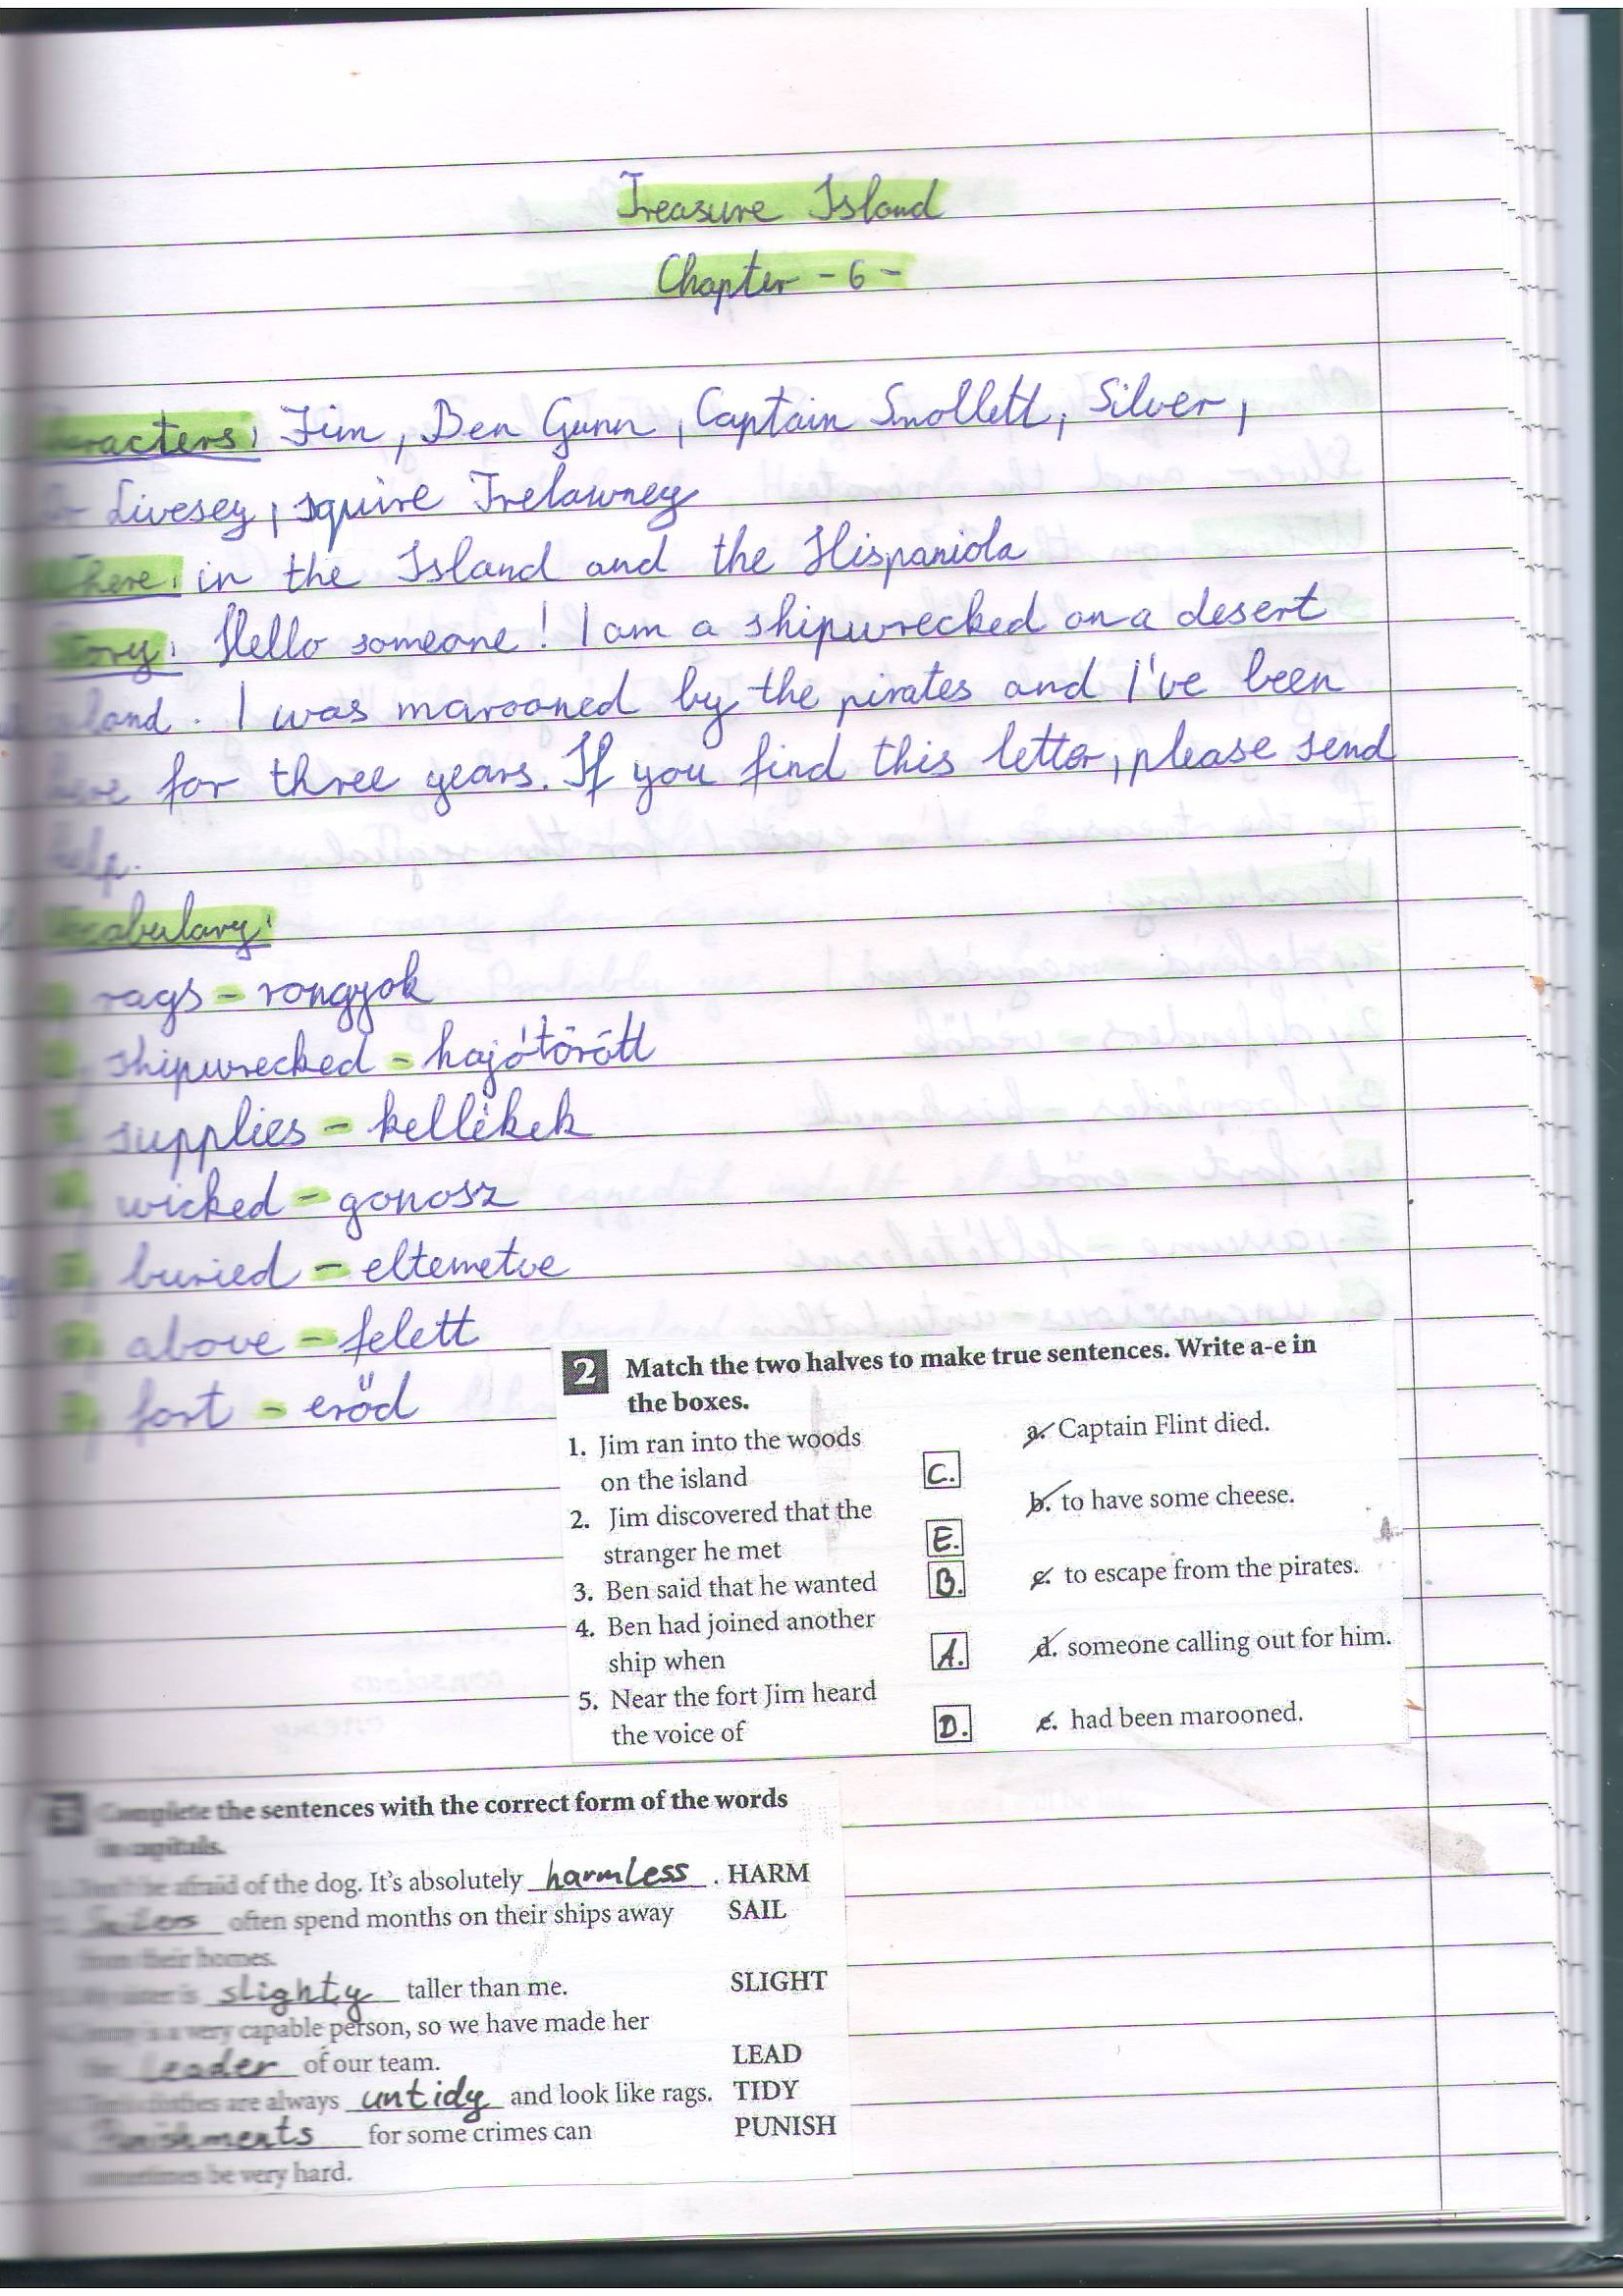 Treasure Island
Chapter - 6 -
Characters: Jim, Ben Gunn, Captain Smollett, Silver,
Dr Livesey, squire Trelawney
Where: in the Island and the Hispaniola
Story: Hello someone! I am a shipwrecked on a desert
island. I was marooned by the pirates and I've been
here for three years. If you find this letter, please send
help.
Vocabulary:
rags - rongyok
shipwrecked - hajótörött
supplies - kellékek
wicked - gonosz
buried - eltemetve
above - felett
fort - erőd
2 Match the two halves to make true sentences. Write a-e in
the boxes.
1. Jim ran into the woods
on the island C.
2. Jim discovered that the
stranger he met E.
3. Ben said that he wanted B.
4. Ben had joined another
ship when A.
5. Near the fort Jim heard
the voice of D.
a. Captain Flint died.
b. to have some cheese.
c. to escape from the pirates.
d. someone calling out for him.
e. had been marooned.
3 Complete the sentences with the correct form of the words
in capitals.
Don't be afraid of the dog. It's absolutely harmless. HARM
Sailors often spend months on their ships away SAIL
from their homes.
is slighty taller than me. SLIGHT
is a very capable person, so we have made her
leader of our team. LEAD
clothes are always untidy and look like rags. TIDY
Punishments for some crimes can PUNISH
sometimes be very hard.